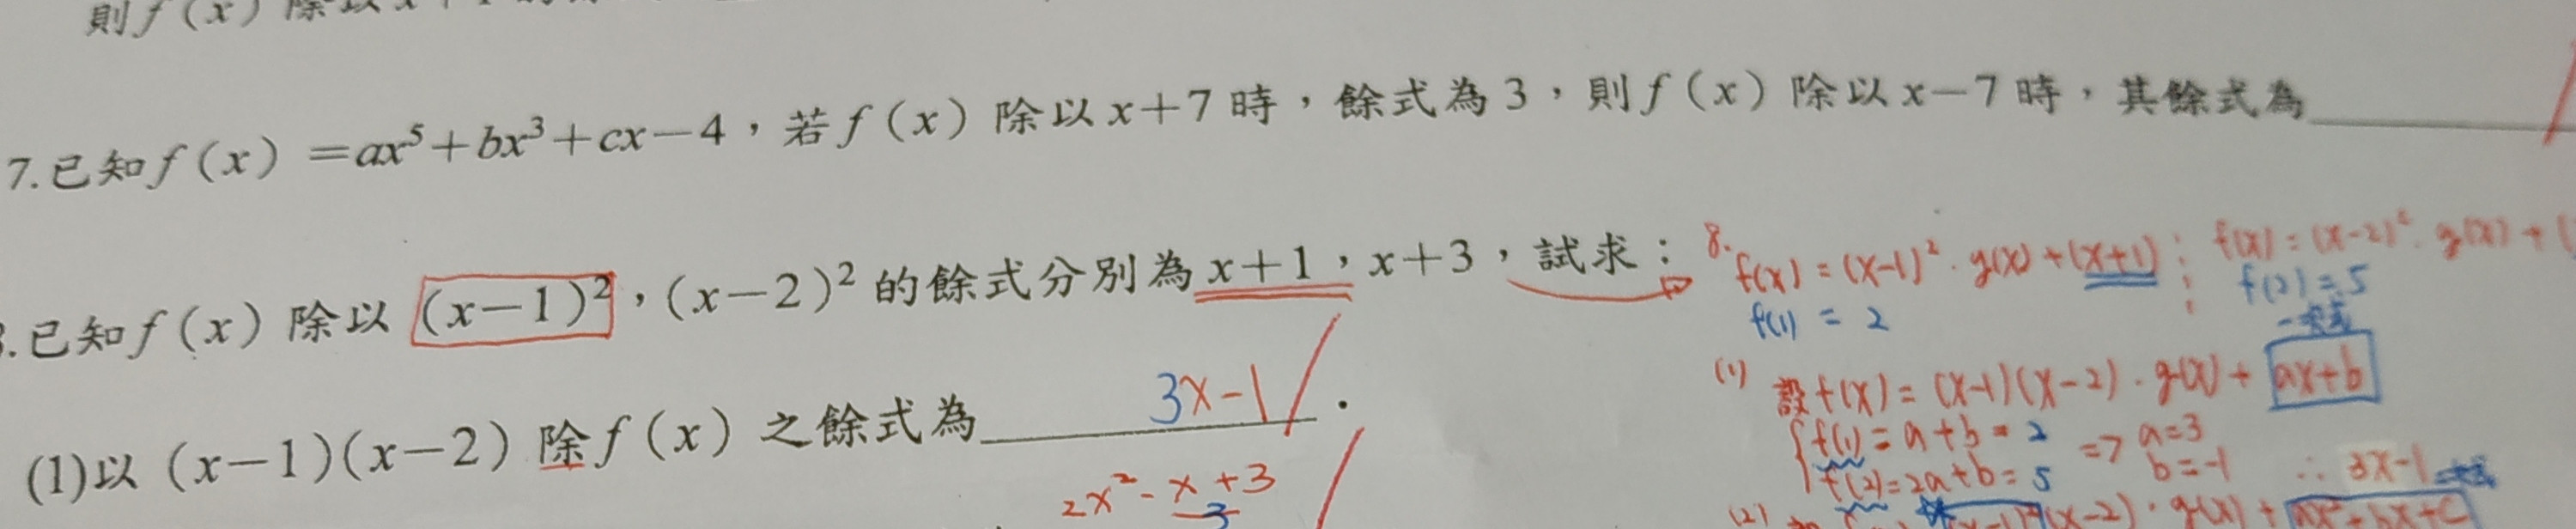 則f(x)除以x+1
7.已知f(x)=ax⁵+bx³+cx-4,若f(x)除以x+7時,餘式為3,則f(x)除以x-7時,其餘式為
.已知f(x)除以(x-1)²,(x-2)²的餘式分別為x+1,x+3,試求:
(1)以(x-1)(x-2)除f(x)之餘式為 3x-1.
2x²-x+3
3
8. f(x)=(x-1)²·g(x)+(x+1)
f(1)=2
f(x)=(x-2)²·g(x)+(
f(2)=5
(1) 設f(x)=(x-1)(x-2)·g(x)+ax+b
f(1)=a+b=2
f(2)=2a+b=5
⇒ a=3
b=-1
∴3x-1
(2) (x-1)²(x-2)·g(x)+ax²+bx+c